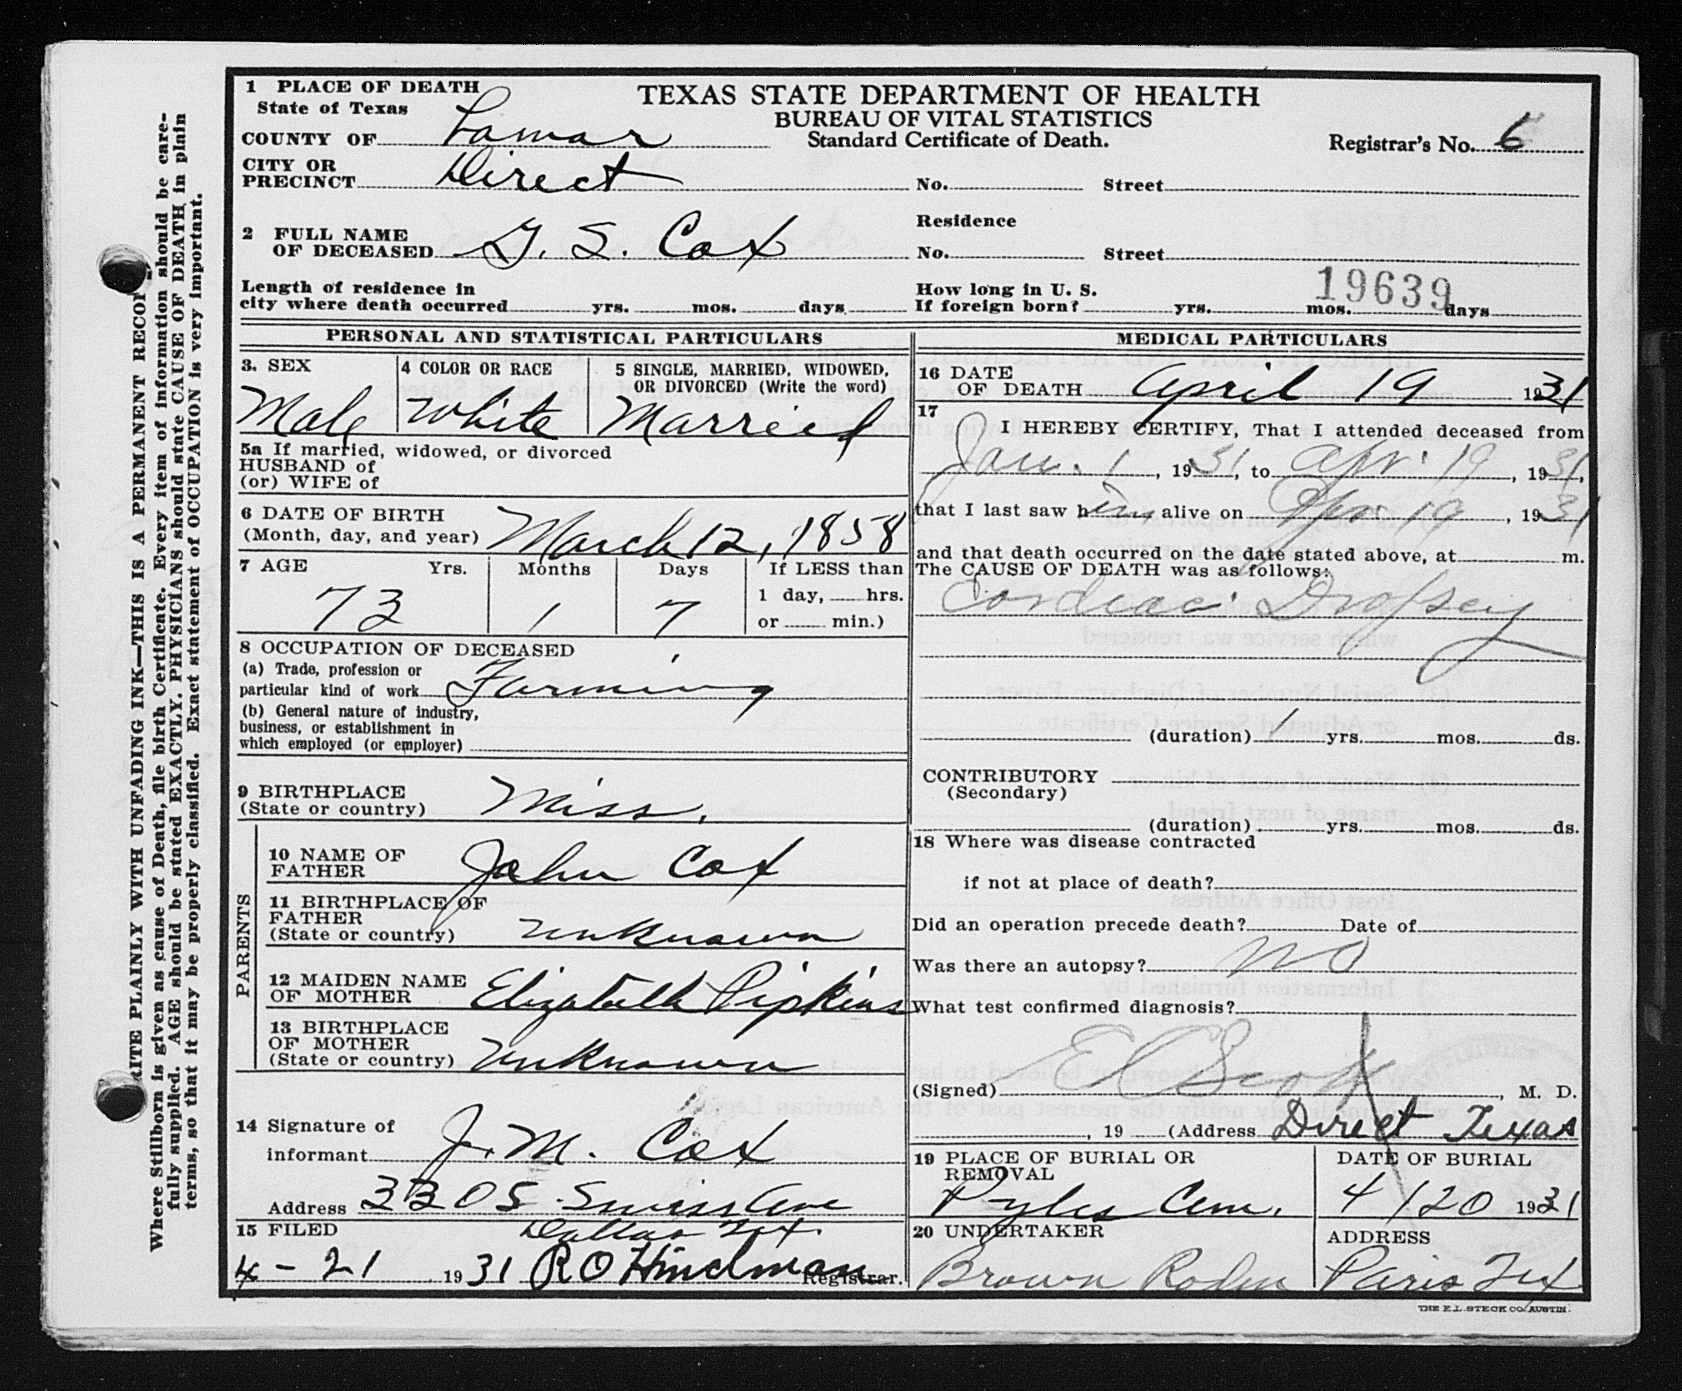 1 PLACE OF DEATH
State of Texas
COUNTY OF Lamar
CITY OR
PRECINCT Direct
TEXAS STATE DEPARTMENT OF HEALTH
BUREAU OF VITAL STATISTICS
Standard Certificate of Death.
Registrar's No. 6
No. Street
2 FULL NAME
OF DECEASED G. S. Cox
Residence
No. Street
Length of residence in
city where death occurred yrs. mos. days
How long in U. S.
If foreign born? yrs. mos. days
19639
PERSONAL AND STATISTICAL PARTICULARS
3. SEX
Male
4 COLOR OR RACE
White
5 SINGLE, MARRIED, WIDOWED,
OR DIVORCED (Write the word)
Married
5a If married, widowed, or divorced
HUSBAND of
(or) WIFE of
6 DATE OF BIRTH
(Month, day, and year) March 12, 1858
7 AGE Yrs. Months Days If LESS than
73 1 7 1 day, hrs.
or min.)
8 OCCUPATION OF DECEASED
(a) Trade, profession or
particular kind of work Farming
(b) General nature of industry,
business, or establishment in
which employed (or employer)
9 BIRTHPLACE
(State or country) Miss.
PARENTS
10 NAME OF
FATHER John Cox
11 BIRTHPLACE OF
FATHER
(State or country) unknown
12 MAIDEN NAME
OF MOTHER Elizabeth Pipkins
13 BIRTHPLACE
OF MOTHER
(State or country) unknown
14 Signature of
informant J. M. Cox
Address 3305 Swiss Ave
Dallas Tex.
15 FILED
4-21 1931 R O Hindman Registrar.
MEDICAL PARTICULARS
16 DATE
OF DEATH April 19 1931
17
I HEREBY CERTIFY, That I attended deceased from
Jan. 1, 1931, to Apr. 19, 1931,
that I last saw him alive on Apr 19, 1931
and that death occurred on the date stated above, at m.
The CAUSE OF DEATH was as follows:
Cordiac Dropsey
(duration) 1 yrs. mos. ds.
CONTRIBUTORY
(Secondary)
(duration) yrs. mos. ds.
18 Where was disease contracted
if not at place of death?
Did an operation precede death? Date of
Was there an autopsy? no
What test confirmed diagnosis?
(Signed) E C Scott, M. D.
, 19 (Address Direct Texas
19 PLACE OF BURIAL OR
REMOVAL
Pyles Cem.
DATE OF BURIAL
4/20 1931
20 UNDERTAKER
Brown Roden
ADDRESS
Paris Tex
THE E.L. STECK CO. AUSTIN.
RITE PLAINLY WITH UNFADING INK—THIS IS A PERMANENT RECOR
Where Stillborn is given as cause of Death, file birth Certificate. Every item of information should be care-
fully supplied. AGE should be stated EXACTLY. PHYSICIANS should state CAUSE OF DEATH in plain
terms, so that it may be properly classified. Exact statement of OCCUPATION is very important.